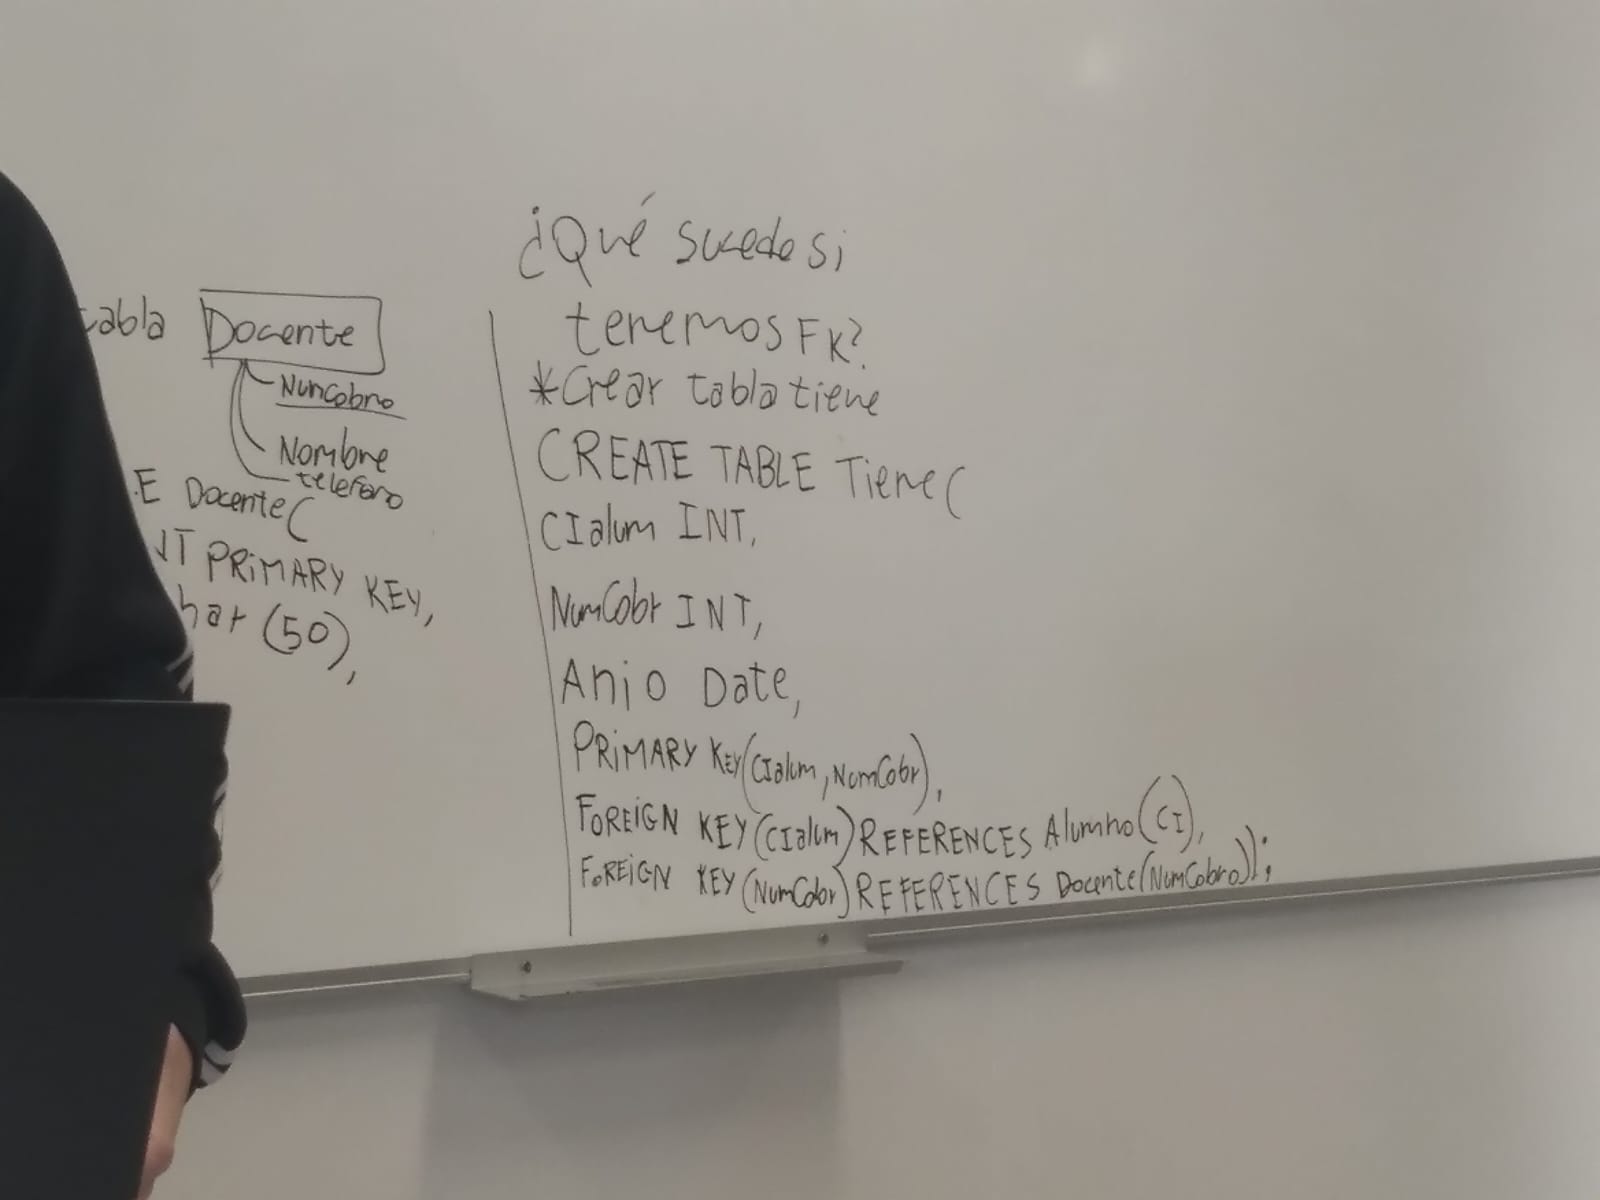 tabla Docente
NumCobro
Nombre
telefono
E Docente(
NT PRIMARY KEY,
har (50),
¿Qué sucede si
tenemos FK?
*Crear tabla tiene
CREATE TABLE Tiene(
CIalum INT,
NumCobr INT,
Anio Date,
PRIMARY KEY(CIalum, NumCobr),
FOREIGN KEY(CIalum) REFERENCES Alumno(CI),
FOREIGN KEY(NumCobr) REFERENCES Docente(NumCobro));